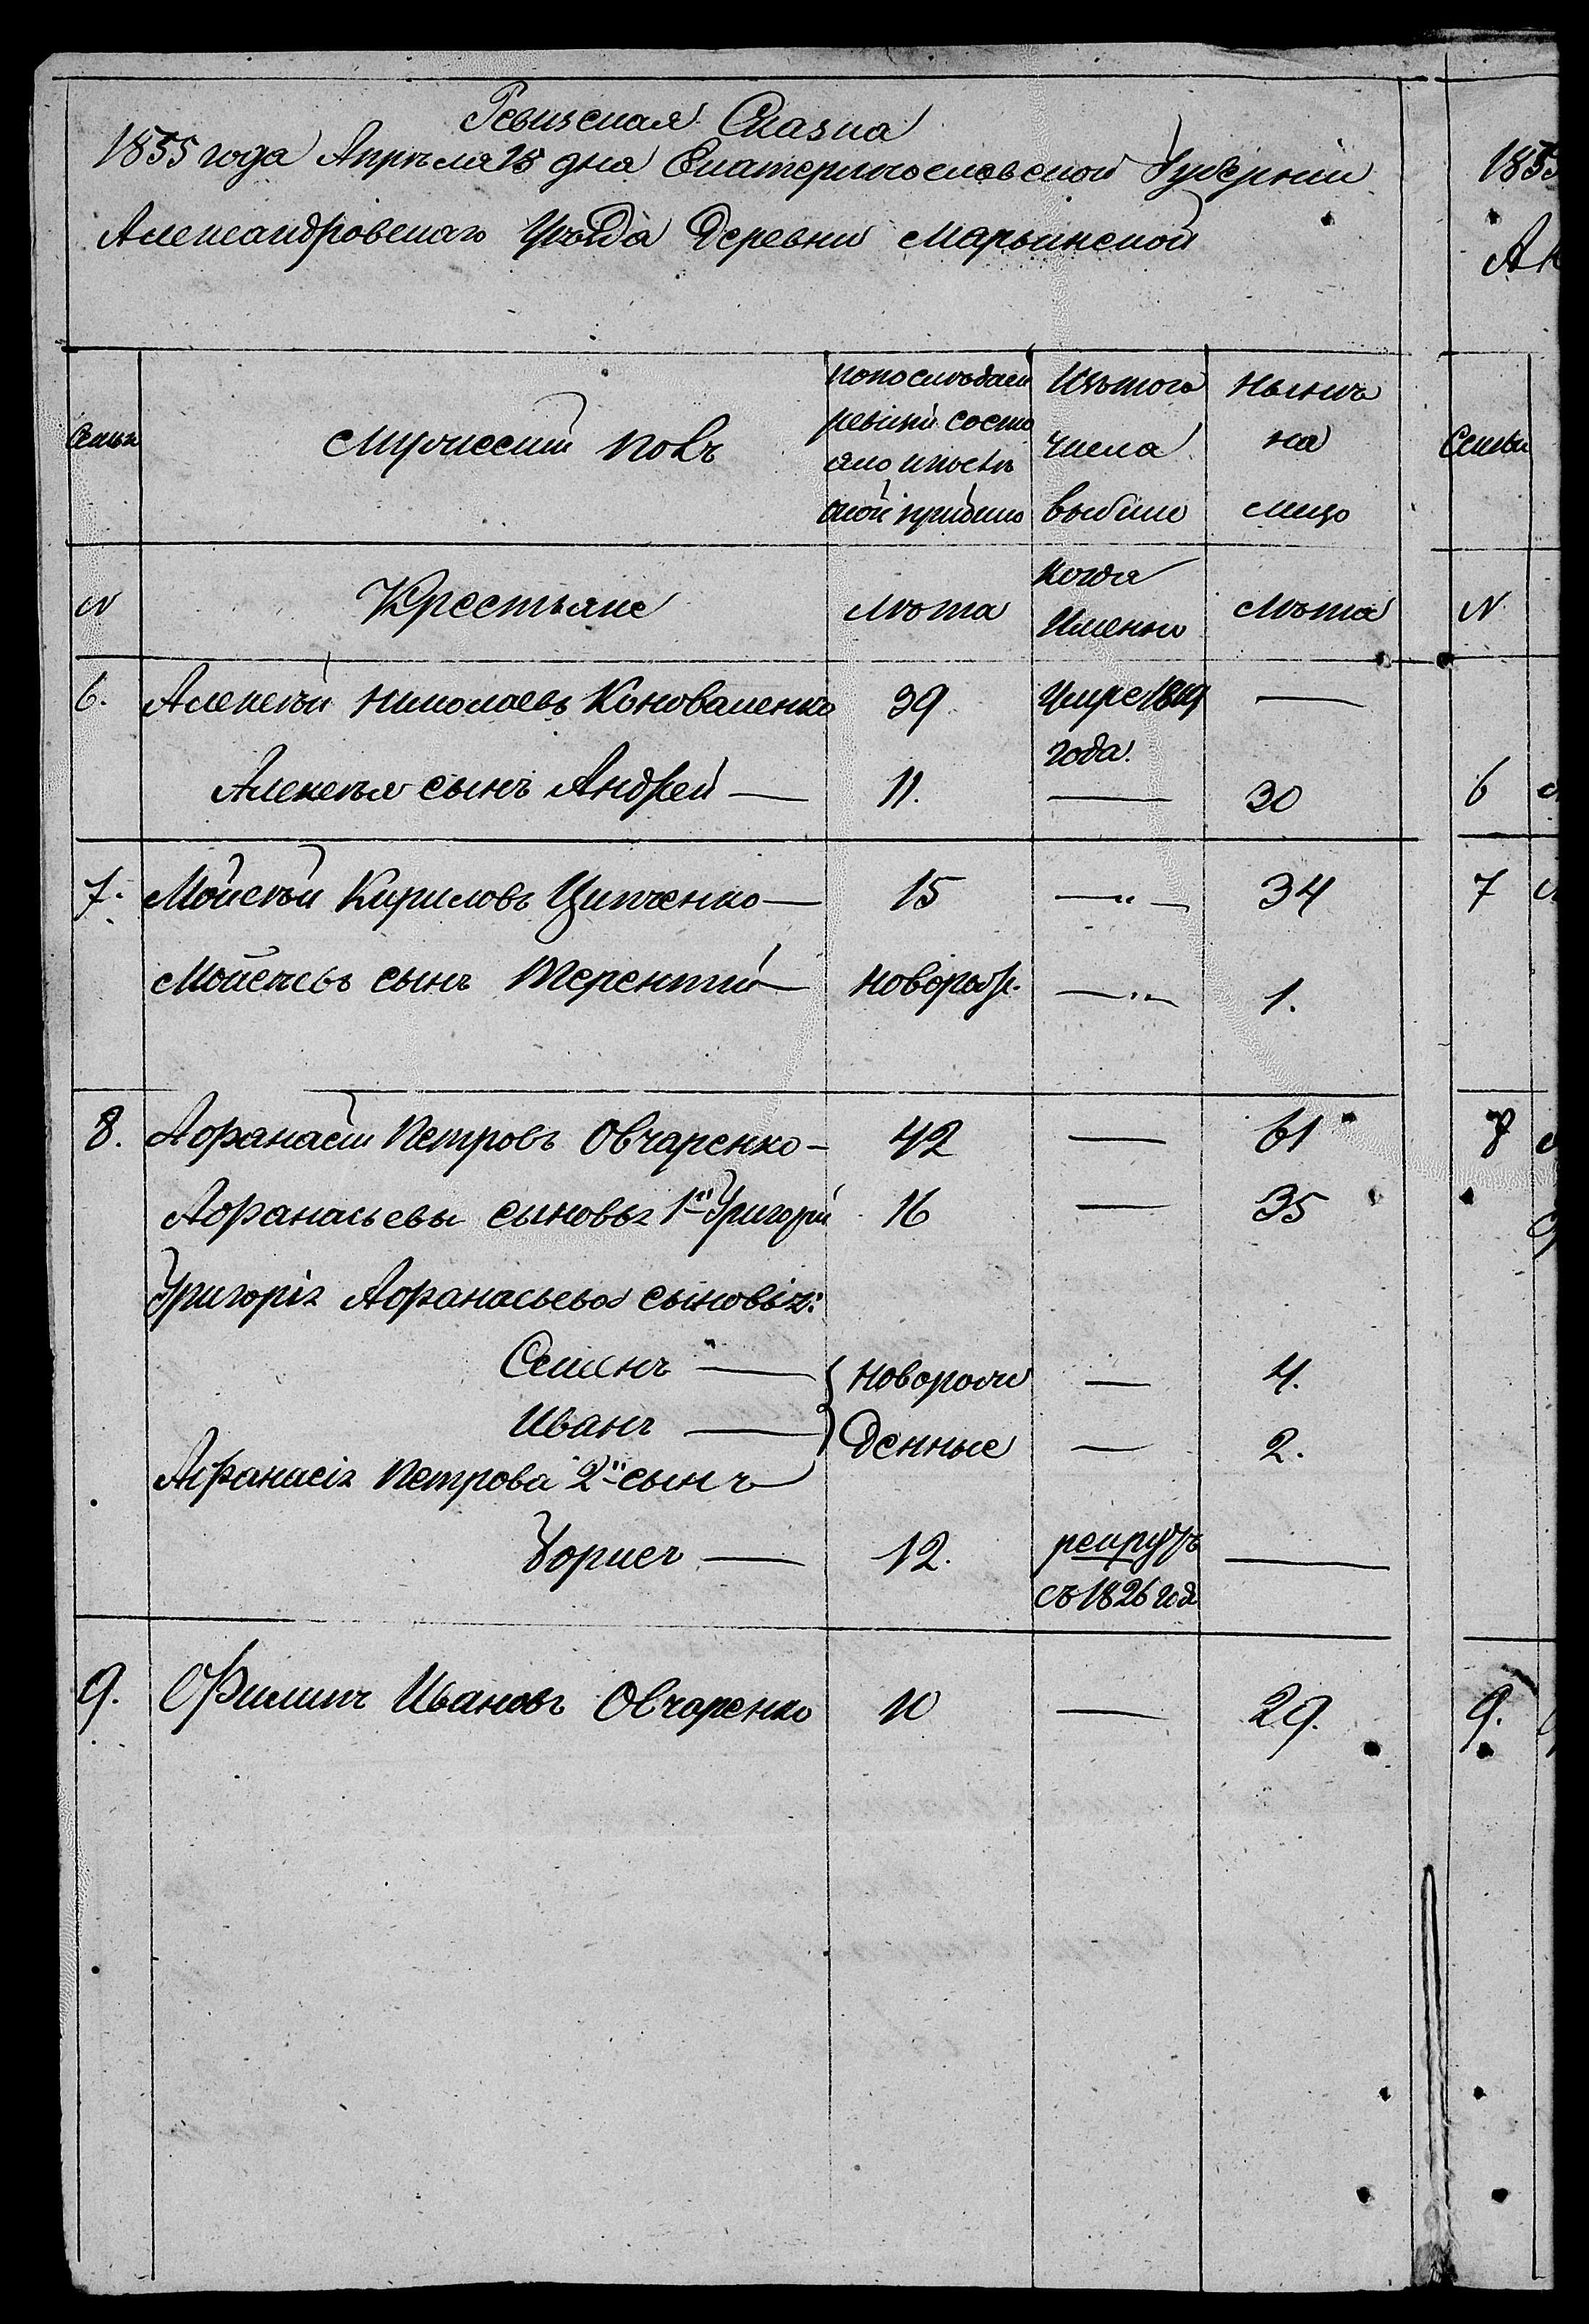 Ревизская Сказка
1855 года Апрѣля 15 дня Екатеринославской Губерніи
Александровскаго Уѣзда Деревни Марьинской
Семьи
Мужескій полъ
По послѣдней
ревизіи состо
яло и послѣ
оной прибыло
Изъ того
числа
выбыло
Нынѣ
на
лицо
Семьи
N
Крестьяне
Лѣта
Когда
Именно
Лѣта
N
6. Алексѣй Николаевъ Коноваленко 39 Умре
года.
Алексѣя сынъ Андрей — 11. — 30
6
7. Мойсей Кириловъ Ципченко — 15 — " — 34
7
Мойсеевъ сынъ Терентій — Новорожд. — " — 1.
8. Афанасій Петровъ Овчаренко — 42 — 61
8
Афанасьевы сыновья 1й Григорій 16 — 35
Григорія Афанасьева сыновья:
Семенъ — Новорож — 4.
Иванъ — денные — 2.
Афанасія Петрова 2й сынъ
Борисъ — 12. рекрутъ —
съ 1826 год
9. Филипъ Ивановъ Овчаренко 10 — 29.
9.
1855